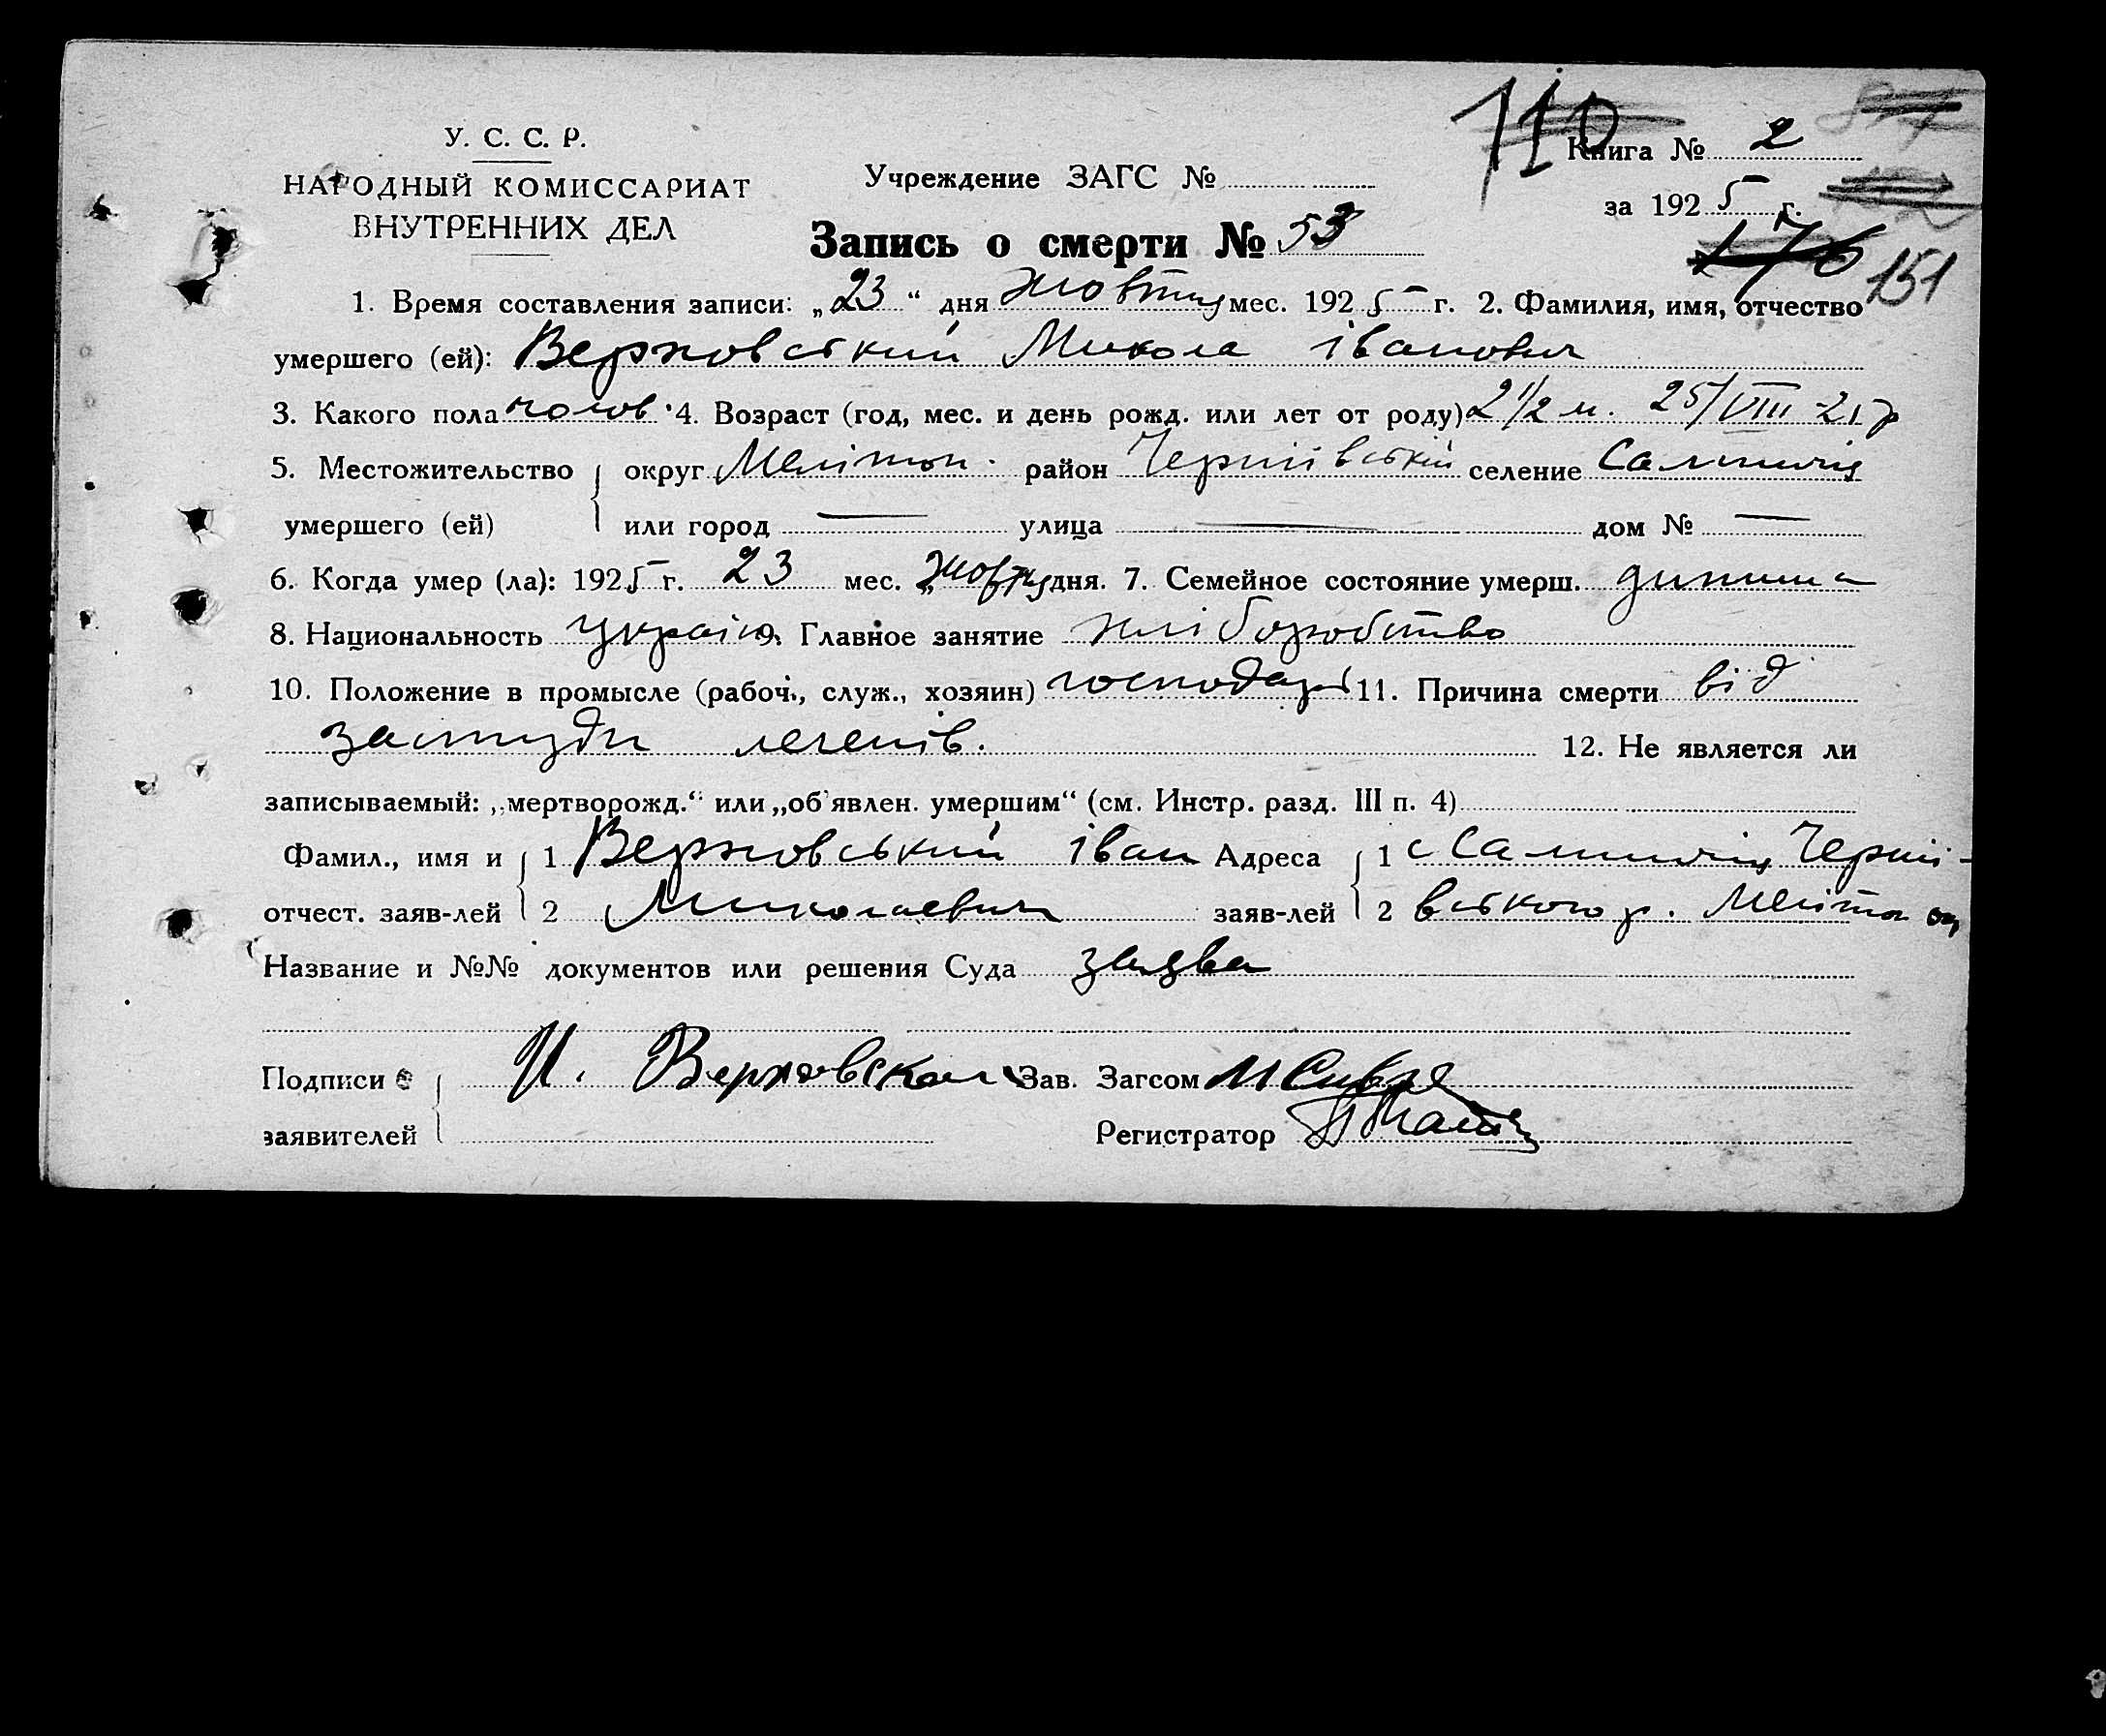 У. С. С. Р.
НАРОДНЫЙ КОМИССАРИАТ
ВНУТРЕННИХ ДЕЛ
Учреждение ЗАГС №
110
Книга № 2
за 1925 г.
176
151
Запись о смерти № 53
1. Время составления записи: „23“ дня жовтня мес. 1925 г. 2. Фамилия, имя, отчество
умершего (ей): Верховський Микола Іванович
3. Какого пола чолов. 4. Возраст (год, мес. и день рожд. или лет от роду) 2 1/2 м. 25/VIII-25 р
5. Местожительство округ Мелітоп. район Чернівський селение
умершего (ей) или город — улица — дом № —
6. Когда умер (ла): 1925 г. 23 мес. „жовтня дня. 7. Семейное состояние умерш. дитина
8. Национальность україн. 9. Главное занятие хліборобство
10. Положение в промысле (рабоч., служ., хозяин) господарі 11. Причина смерти від
застуди легенів. 12. Не является ли
записываемый: „мертворожд.“ или „об'явлен. умершим“ (см. Инстр. разд. III п. 4)
Фамил., имя и 1 Верховський Іван Адреса 1 с Черні-
отчест. заяв-лей 2 Миколаевич заяв-лей 2 вського р. Мелітоп ок
Название и №№ документов или решения Суда заява
Подписи И. Верховский Зав. Загсом
заявителей Регистратор